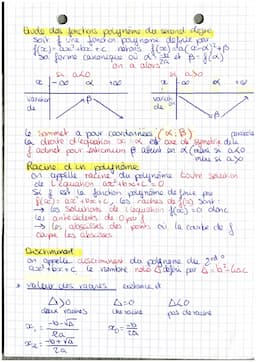 Etude des fonctions polynôme du second degré
Soit f une fonction polynôme définie par
f(x)=ax²+bx+c notons f(x)=a(x-α)²+β
sa forme canonique où α= et β=f(α)
on a alors
si a<0 si a>0
x -∞ α +∞ x -∞ α +∞
variation de β variation de β
le sommet a pour coordonnées (α;β)
la droite d'équation x=α est axe de symétrie
f admet pour β atteint en α (si a<0
si a>0
Racine d'un polynôme
on appelle racine du polynôme toute solution
de l'équation ax²+bx+c=0
Si f est la fonction polynôme définie par
f(x)=ax²+bx+c, les racines de f(x) sont :
→ les solutions de l'équation f(x)=0 donc
les antécédents de 0 par f
→ les abscisses des points où la courbe de f
coupe les abscisses
Discriminant
on appelle discriminant du polynôme du 2nd °
ax²+bx+c le nombre noté Δ défini par Δ=b²-4ac
→ valeur des racines
Δ>0 Δ=0 Δ<0
deux racines une racine pas de racine
x₁ = -b-√Δ / 2a x₀ = -b / 2a
x₂ = -b+√Δ / 2a